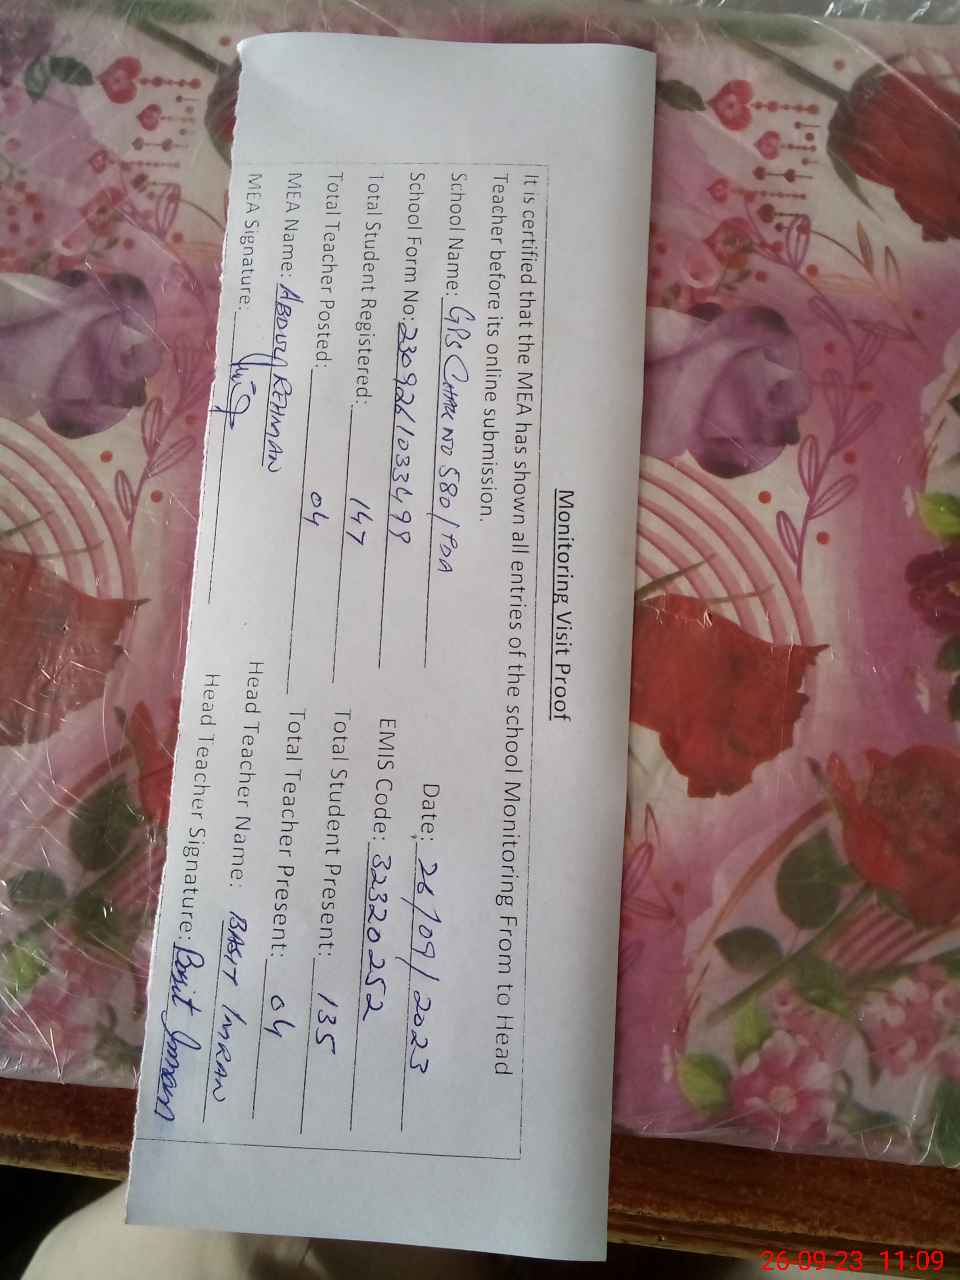 Monitoring Visit Proof
It is certified that the MEA has shown all entries of the school Monitoring From to Head
Teacher before its online submission.
School Name: GPS CHAK NO 580/TDA Date: 26/09/2023
School Form No: 230926/033499 EMIS Code: 32320252
Total Student Registered: 147 Total Student Present: 135
Total Teacher Posted: 04 Total Teacher Present: 04
MEA Name: ABDUL REHMAN Head Teacher Name: BASIT IMRAN
MEA Signature: Head Teacher Signature: Basit Imran
26-09-23 11:09